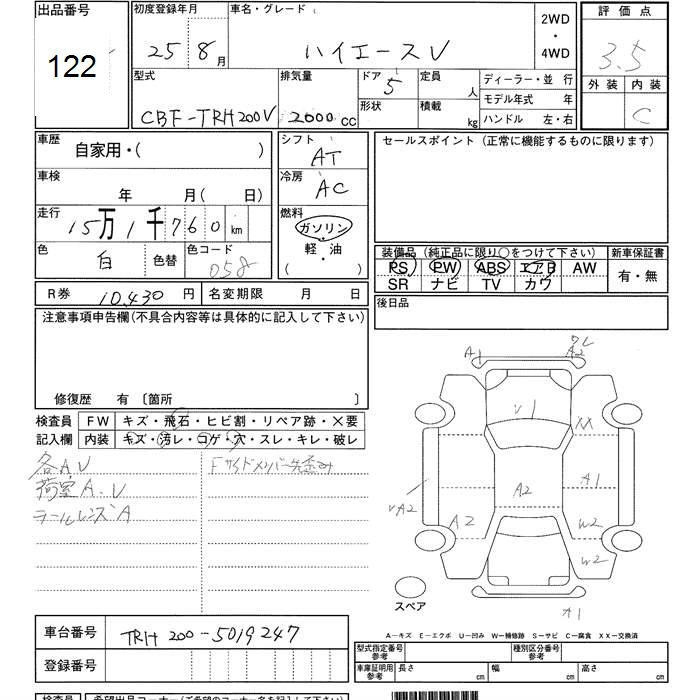 出品番号 122
初度登録年月 25 8月
車名・グレード ハイエースV
2WD・4WD
評価点 3.5
外装 内装 C
型式 CBF-TRH200V
排気量 2000cc
ドア 5
形状
定員 人
積載 kg
ディーラー・並行
モデル年式 年
ハンドル 左・右
車歴 自家用・( )
車検 年 月( 日)
走行 15万1千760km
色 白 色替
色コード 058
シフト AT
冷房 AC
燃料 ガソリン・軽・油 ( )
セールスポイント(正常に機能するものに限ります)
装備品(純正品に限り○をつけて下さい)
PS PW ABS エアB AW
SR ナビ TV カワ
新車保証書 有・無
R券 10,430円 名変期限 月 日
後日品
注意事項申告欄(不具合内容等は具体的に記入して下さい)
修復歴 有 〔箇所 〕
検査員記入欄
FW キズ・飛石・ヒビ割・リペア跡・X要
内装 キズ・汚レ・コゲ・穴・スレ・キレ・破レ
各A.U
荷室A.U
テールレンズA
Fサイドメンバー先歪み
A1
A2
U1
XX
A1
A2
UA2
A2
W2
W2
A1
スペア
A-キズ E-エクボ U-凹み W-補修跡 S-サビ C-腐食 XX-交換済
車台番号 TRH200-5019247
登録番号
型式指定番号 参考
種別区分番号 参考
車庫証明用 参考 長さ cm 幅 cm 高さ cm